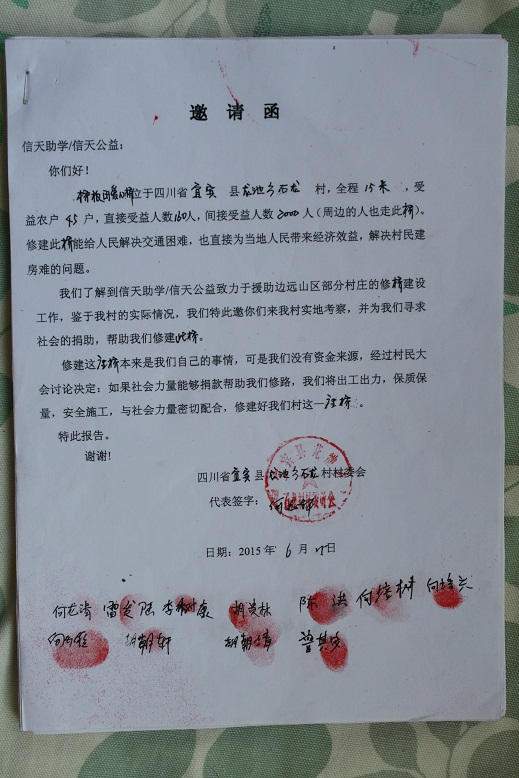 邀 请 函
信天助学/信天公益:
你们好!
位于四川省宜宾县龙池乡石龙村,全程15米,受
益农户45户,直接受益人数160人,间接受益人数2000人(周边的人也走此桥)。
修建此桥能给人民解决交通困难,也直接为当地人民带来经济效益,解决村民建
房难的问题。
我们了解到信天助学/信天公益致力于援助边远山区部分村庄的修桥建设
工作,鉴于我村的实际情况,我们特此邀你们来我村实地考察,并为我们寻求
社会的捐助,帮助我们修建此桥。
修建这桥本来是我们自己的事情,可是我们没有资金来源,经过村民大
会讨论决定:如果社会力量能够捐款帮助我们修路,我们将出工出力,保质保
量,安全施工,与社会力量密切配合,修建好我们村这一桥。
特此报告。
谢谢!
四川省宜宾县龙池乡石龙村村委会
代表签字:
日期:2015年6月17日
何龙清 雷 李树康 胡 陈洪 何培树 何培兴
胡朝轩 胡朝清 曾其